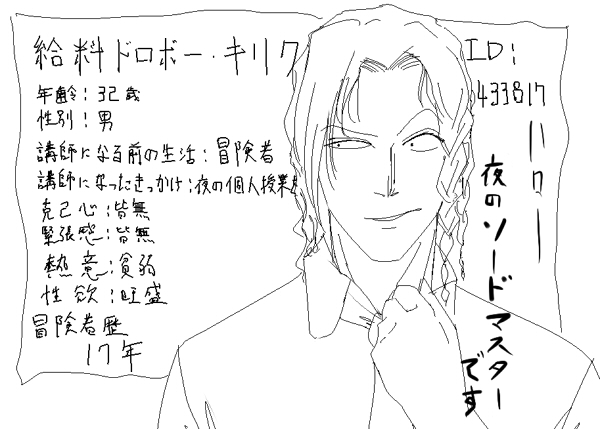 給料ドロボー・キリク
年齢：32歳
性別：男
講師になる前の生活：冒険者
講師になったきっかけ：夜の個人授業
克己心：皆無
緊張感：皆無
熱意：貧弱
性欲：旺盛
冒険者歴
17年
ID：
433817
ハロー
夜のソードマスター
です